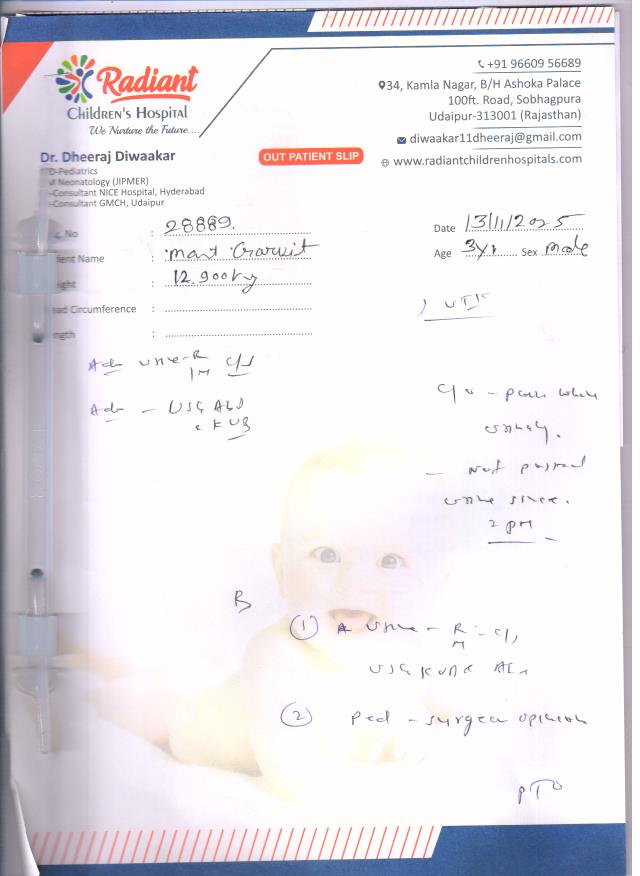 Radiant
CHILDREN'S HOSPITAL
We Nurture the Future....
+91 96609 56689
34, Kamla Nagar, B/H Ashoka Palace
100ft. Road, Sobhagpura
Udaipur-313001 (Rajasthan)
diwaakar11dheeraj@gmail.com
www.radiantchildrenhospitals.com
Dr. Dheeraj Diwaakar
OUT PATIENT SLIP
D-Pediatrics
Neonatology (JIPMER)
-Consultant NICE Hospital, Hyderabad
-Consultant GMCH, Udaipur
No : 28889.
Date 13/11/2025
ient Name : Garvit
Age 3yr Sex male
ight : 12.900kg
ead Circumference :
ngth :
Adv urine - R/M C/S
Adv - USG Abd
c KUB
c/o - pain while
- Not passed
urine since.
2 PM
R
1 urine - R/M - C/S
USG KUB
2 Ped - surgeon opinion
PTO